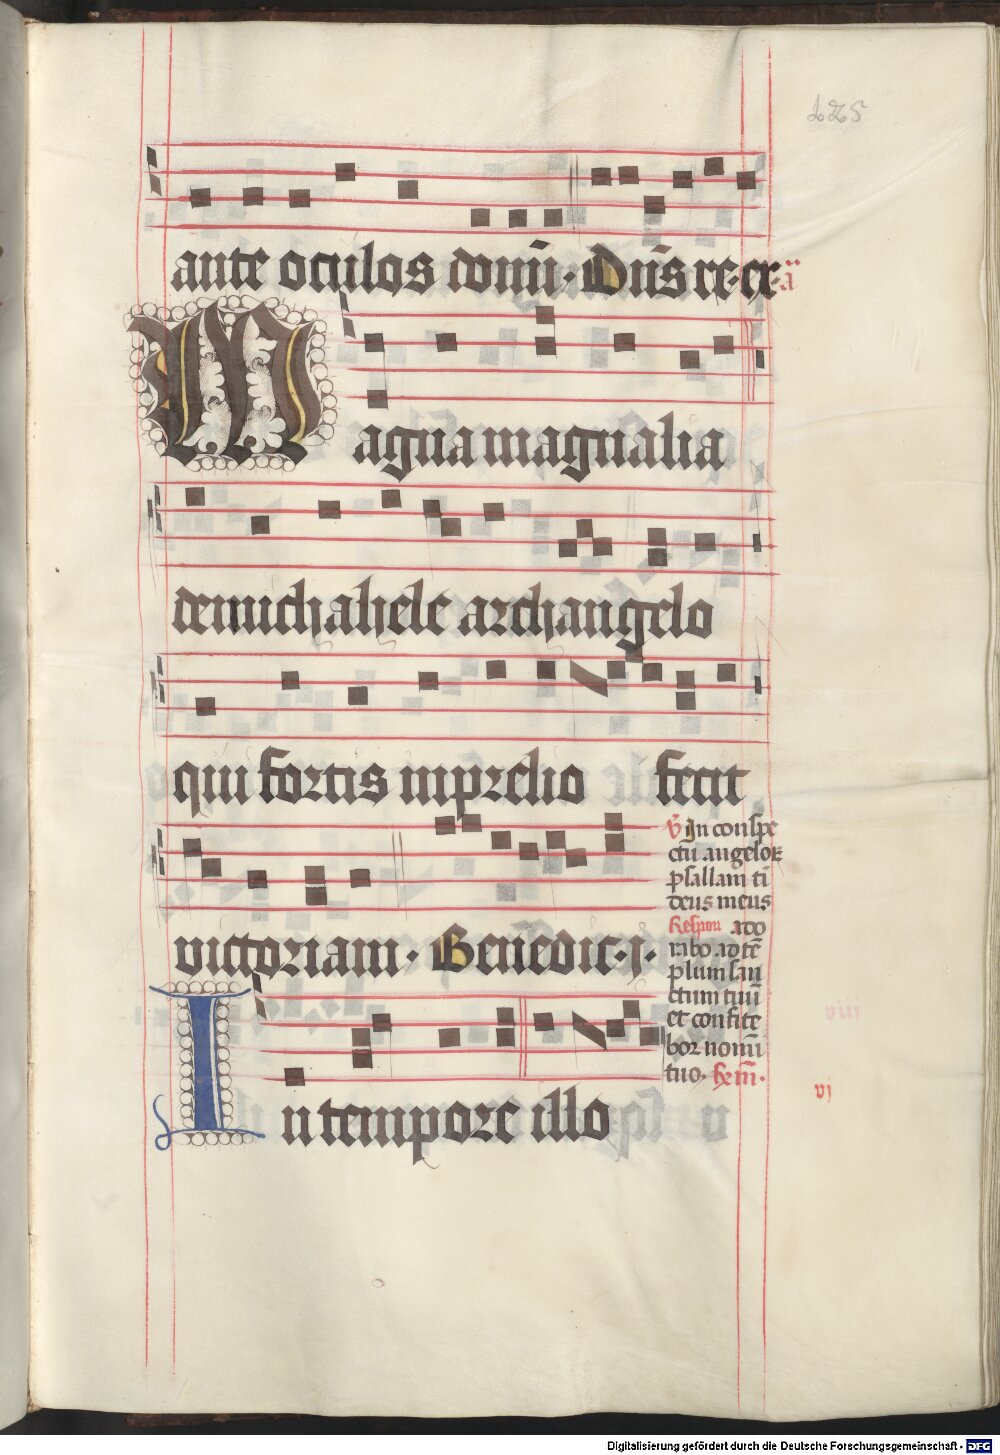 125
ante oculos domī · Dn̄s re·ex·
ā
Magna magnalia
demichahele archangelo
qui fortis inprelio fecit
victoriam · Benedic·j·
℣ In conspe
ctu angeloꝝ
psallam ti
deus meus
Respon ado
rabo ad tē
plum san
ctum tuū
et confite
bor nomī
tuo.
viii
vj
In tempore illo
Digitalisierung gefördert durch die Deutsche Forschungsgemeinschaft - DFG